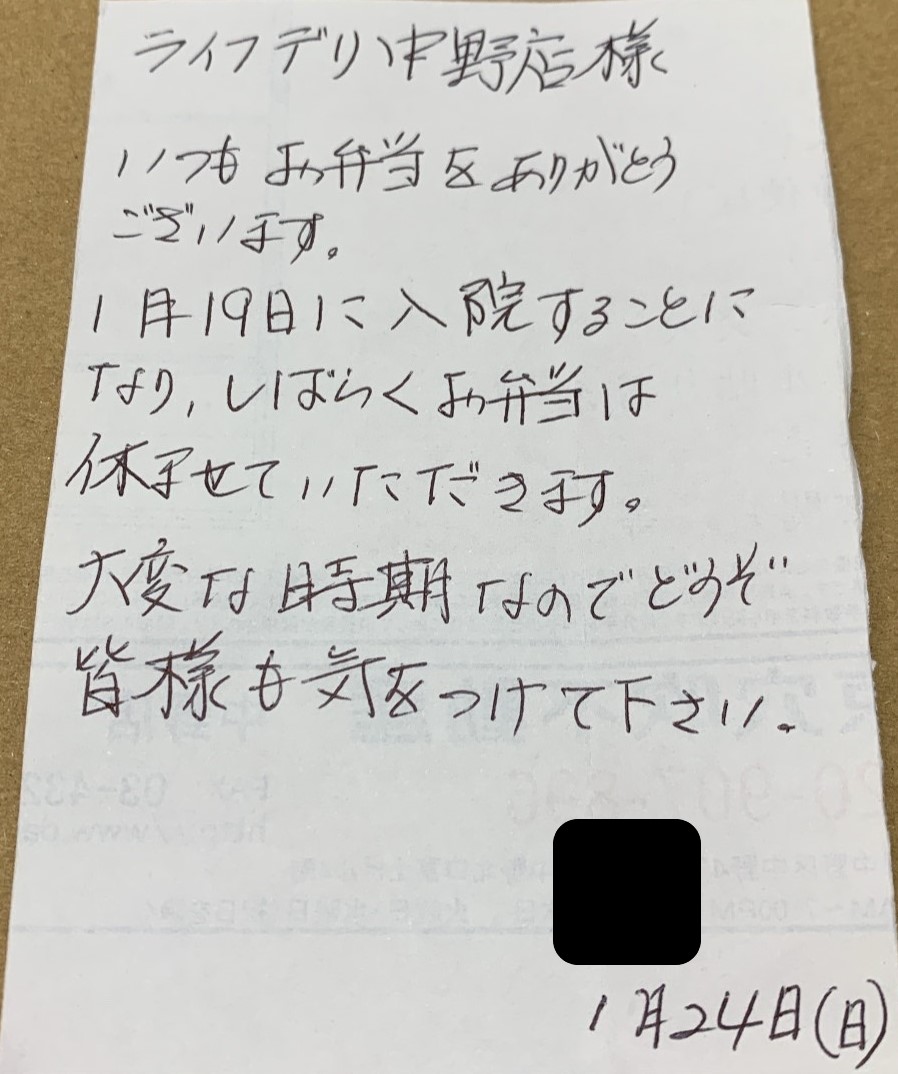 ライフデリ中野店様
いつもお弁当をありがとう
ございます。
1月19日に入院することに
なり,しばらくお弁当は
休ませていただきます。
大変な時期なのでどうぞ
皆様も気をつけて下さい.
1月24日(日)